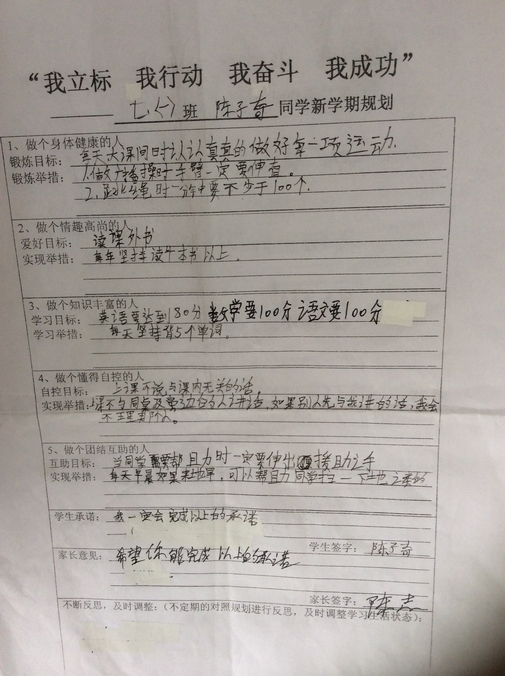 “我立标 我行动 我奋斗 我成功”
七(六)班 陈子奇 同学新学期规划
1、做个身体健康的人
锻炼目标：每天大课间时认认真真的做好每一项运动.
锻炼举措：1.做广播操时手臂一定要伸直。
2.跳绳时一分钟要不少于100个.
2、做个情趣高尚的人
爱好目标：读课外书
实现举措：每年坚持读本书以上.
3、做个知识丰富的人
学习目标：英语要达到80分 数学要100分 语文要100分
学习举措：每天坚持背5个单词.
4、做个懂得自控的人
自控目标：上课不说与课内无关的话。
实现举措：上课不与同桌及旁边的人讲话,如果别人先与我讲话,我会
不理那个人。
5、做个团结互助的人
互助目标：当同学需要帮助时一定要伸出援助之手
实现举措：每天早晨如果来地早,可以帮助同学扫一下地之类的
学生承诺：我一定会完成以上的承诺
学生签字：陈子奇
家长意见：希望你能完成以上的承诺
家长签字：陈志
不断反思，及时调整：（不定期的对照规划进行反思，及时调整学习生活状态）：